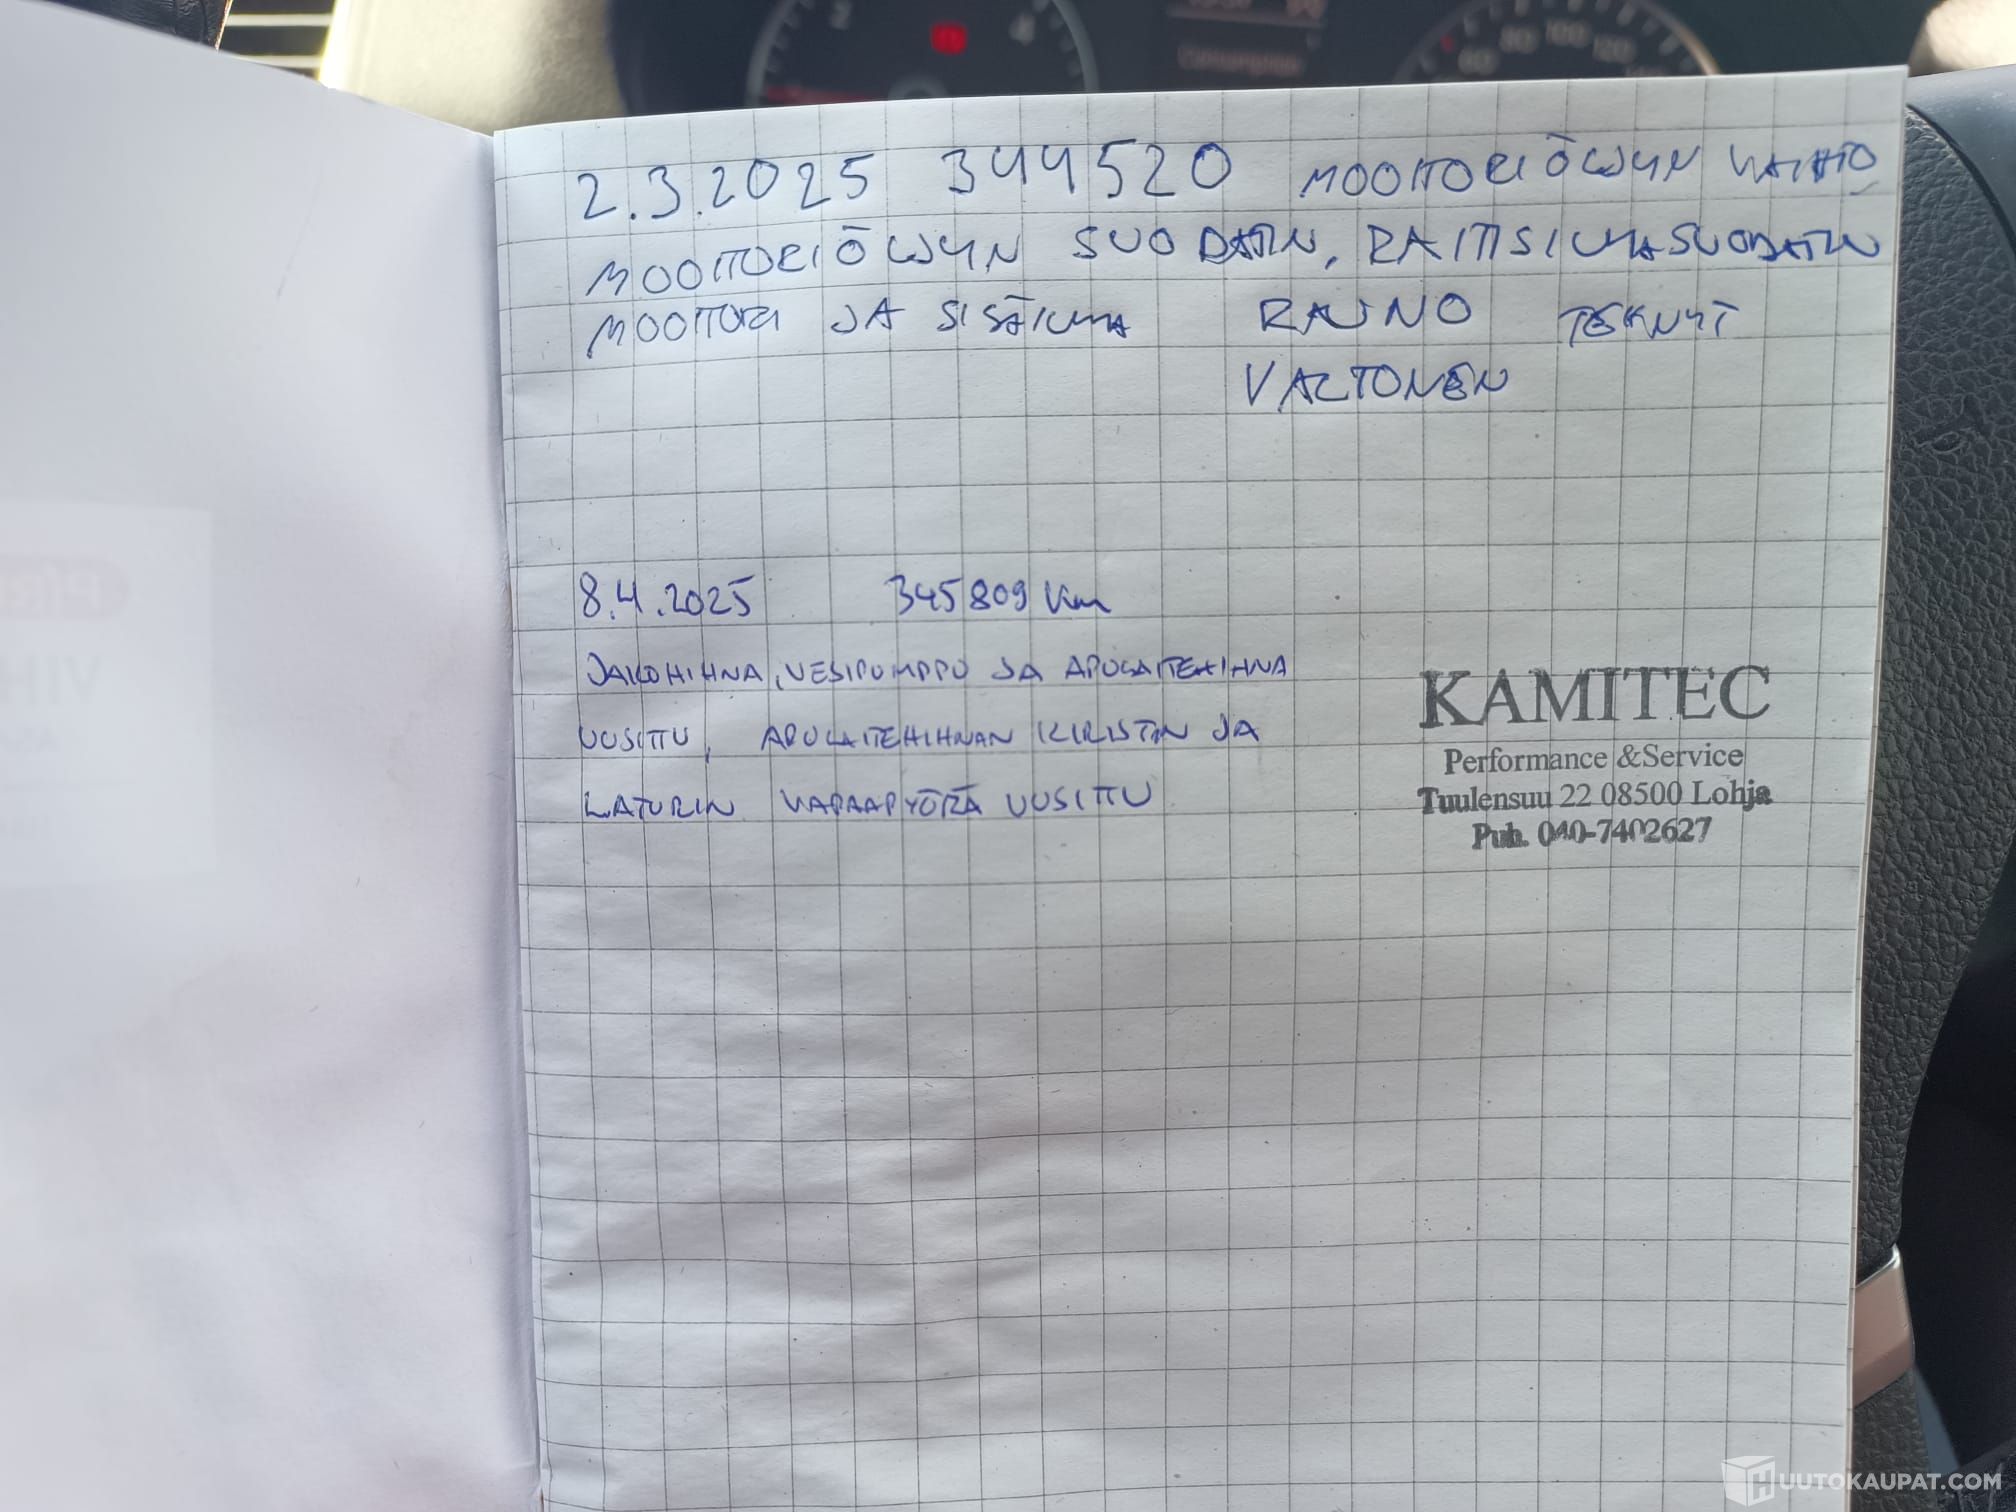 2.3.2025 344520 MOOTTORIÖLJYN VAIHTO
MOOTTORIÖLJYN SUODATIN, RAITISILMASUODATIN
MOOTTORI JA SISÄILMA RAINO TEHNYT
VALTONEN
8.4.2025 345809 km
JAKOHIHNA, VESIPUMPPU JA APULAITEHIHNA
UUSITTU, APULAITEHIHNAN KIRISTIN JA
LATURIN VAPAAPYÖRÄ UUSITTU
KAMITEC
Performance &Service
Tuulensuu 22 08500 Lohja
Puh. 040-7402627
Consumption
2 4
60 80 100 120
VIH
HUUTOKAUPAT.COM